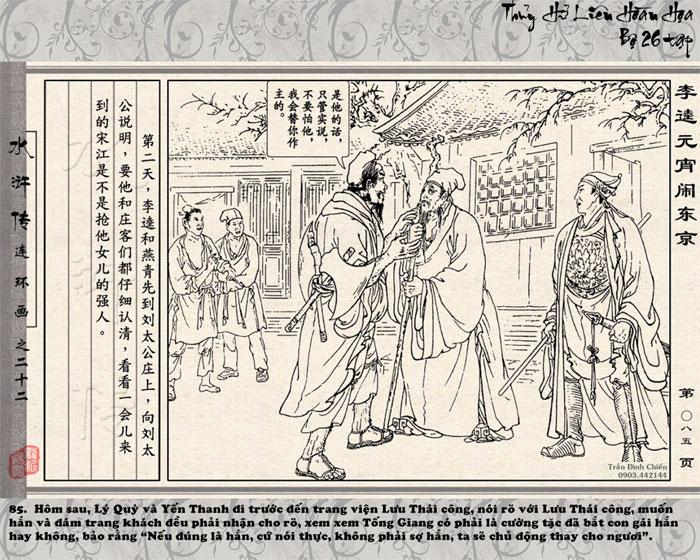 Thủy Hử Liên Hoàn Họa
Bộ 26 tập
水浒传连环画之二十二
李逵元宵闹东京
第〇八五页
第二天，李逵和燕青先到刘太公庄上，向刘太
公说明，要他和庄客们都仔细认清，看看一会儿来
到的宋江是不是抢他女儿的强人。
是他的话，
只管实说，
不要怕他，
我会替你作
主的。
Trần Đình Chiến
0903.442144
85. Hôm sau, Lý Quỳ và Yến Thanh đi trước đến trang viện Lưu Thái công, nói rõ với Lưu Thái công, muốn
hắn và đám trang khách đều phải nhận cho rõ, xem xem Tống Giang có phải là cường tặc đã bắt con gái hắn
hay không, bảo rằng “Nếu đúng là hắn, cứ nói thực, không phải sợ hắn, ta sẽ chủ động thay cho ngươi”.